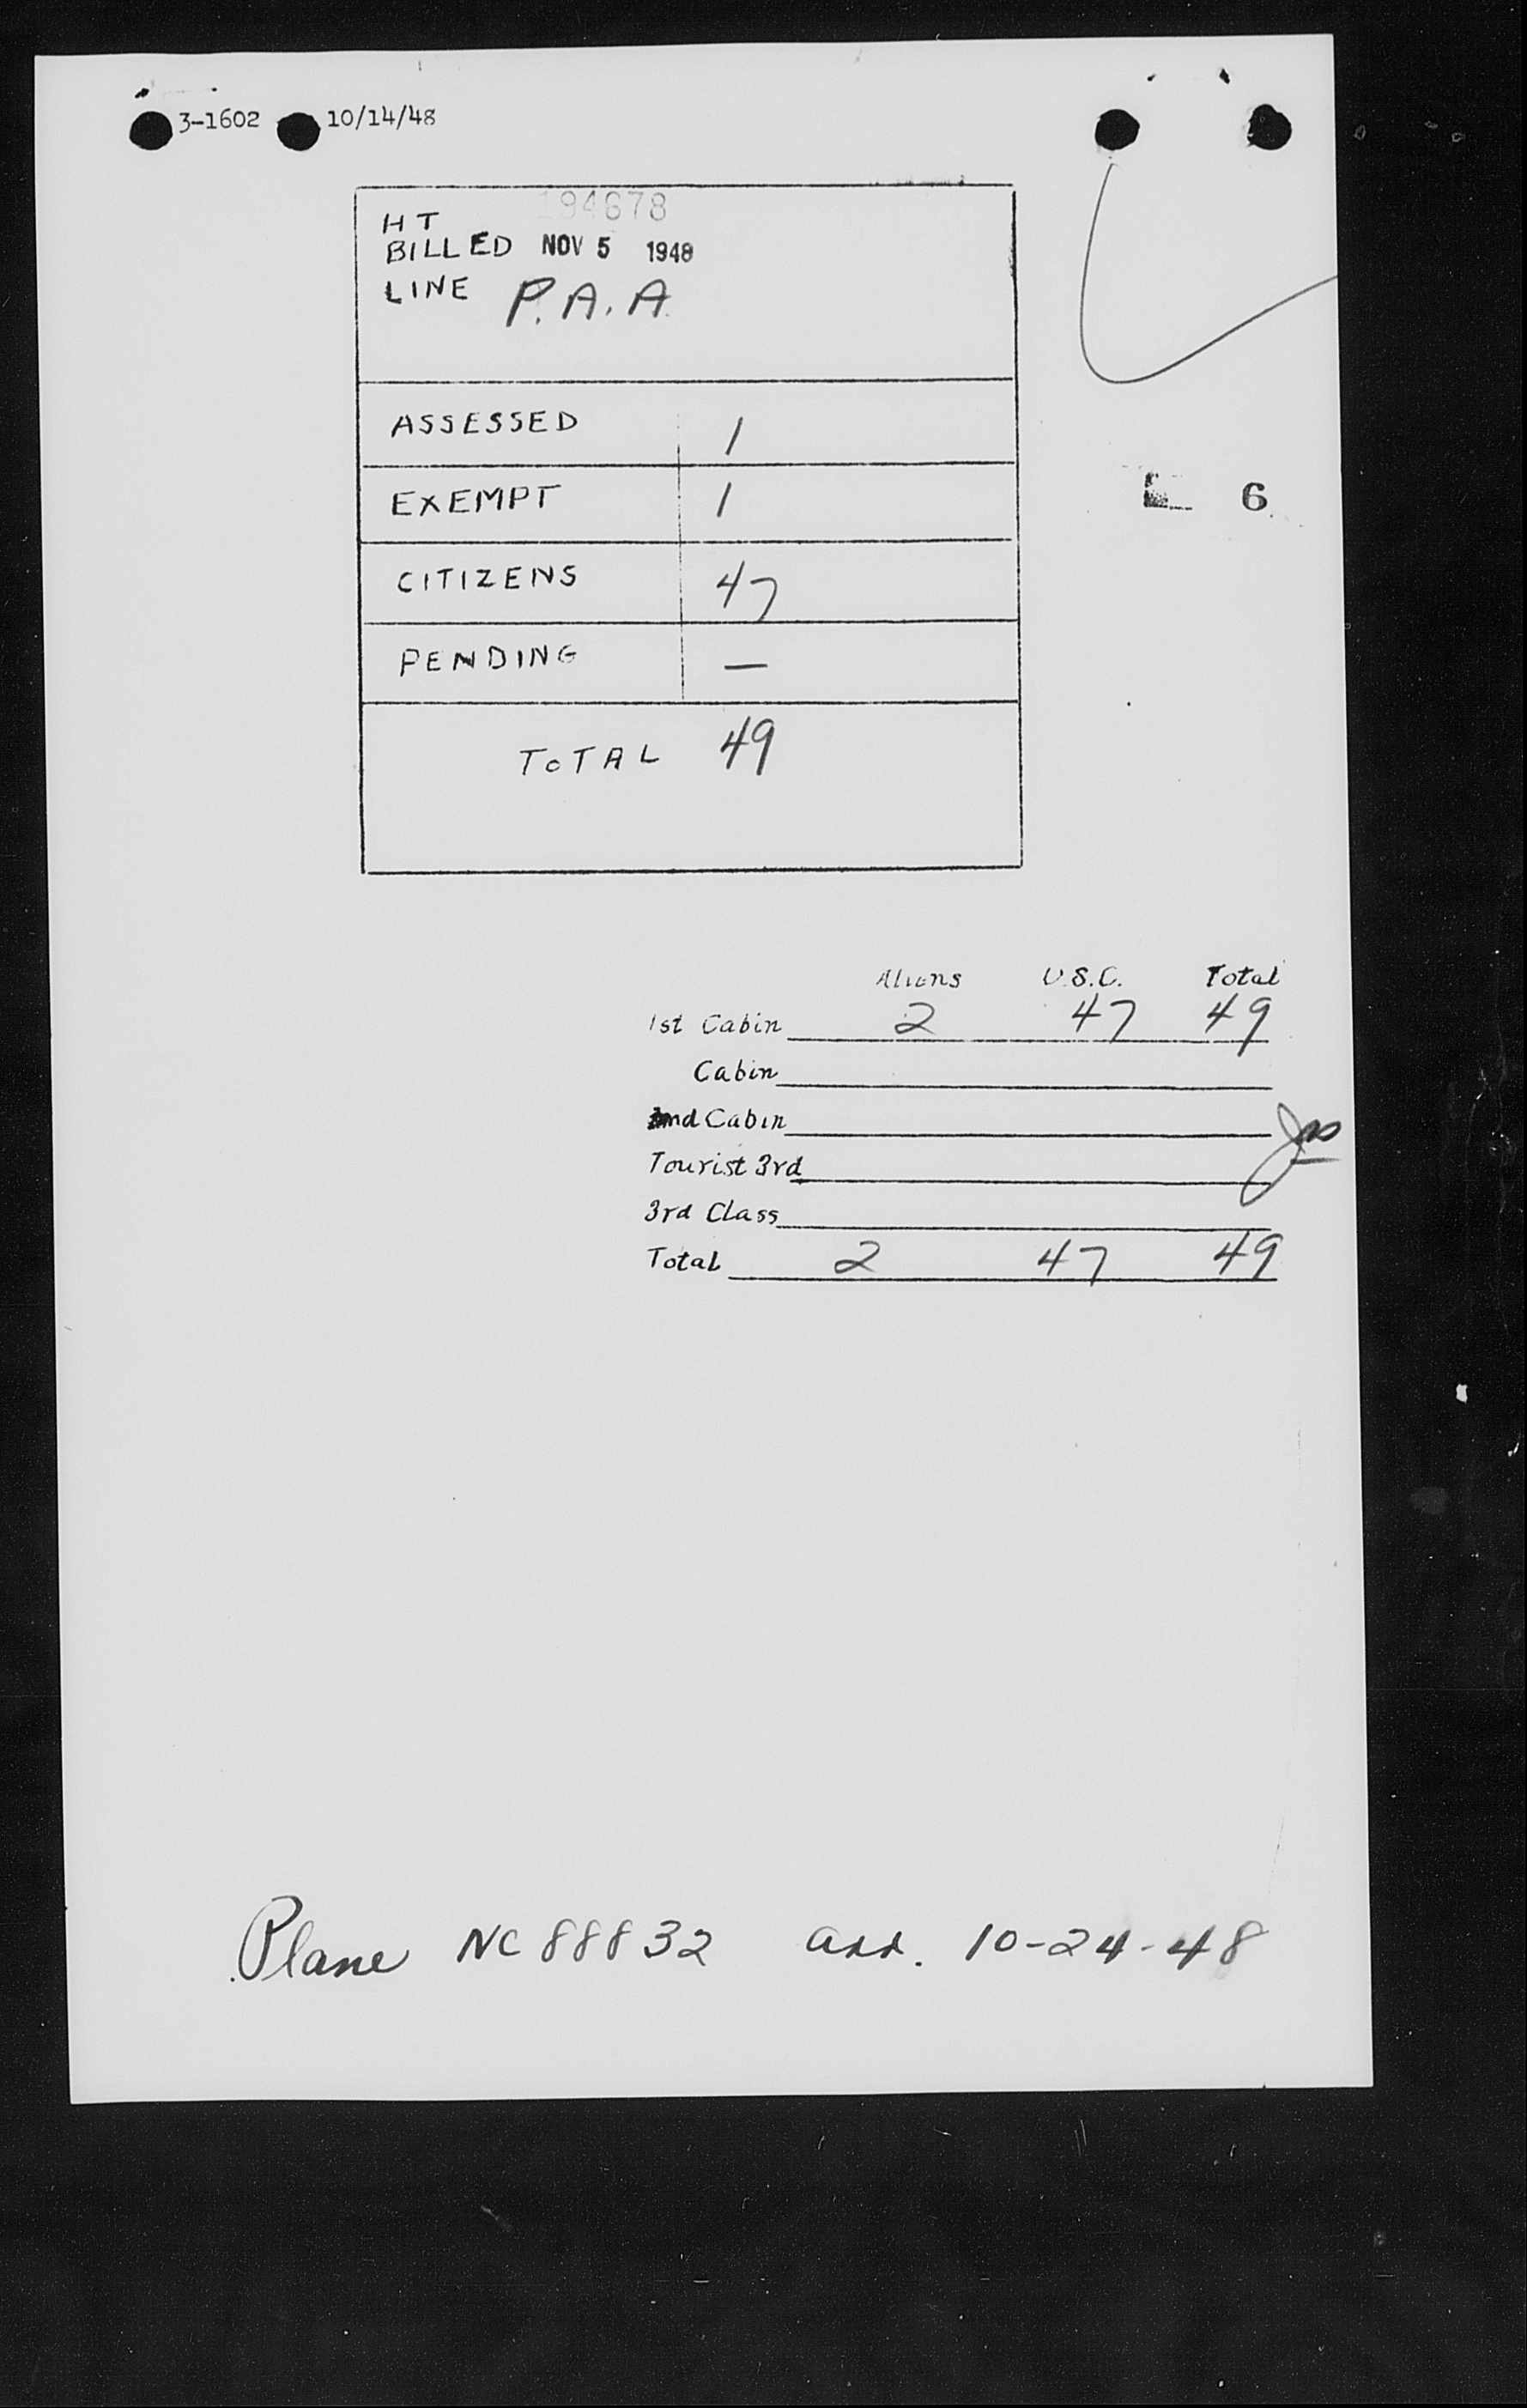 3-1602 10/14/48
194678
HT
BILLED NOV 5 1948
LINE P.A.A.
ASSESSED 1
EXEMPT 1
6
CITIZENS 47
PENDING —
TOTAL 49
Aliens U.S.C. Total
1st Cabin 2 47 49
Cabin
2nd Cabin
Tourist 3rd
3rd Class
Total 2 47 49
Plane NC 88832 arr. 10-24-48